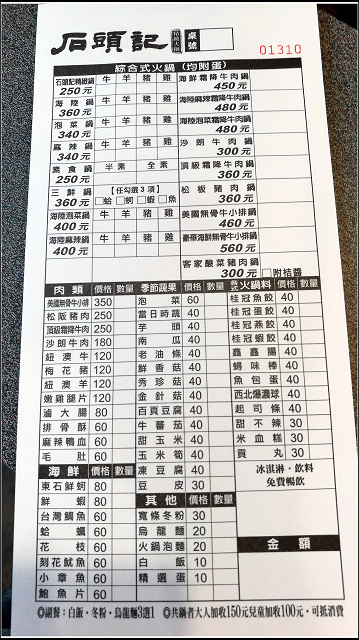 石頭記 精緻火鍋 桌號
01310
綜合式火鍋（均附蛋）
石頭記精緻鍋 250元 牛 羊 豬 雞 海鮮霜降牛肉鍋 450元
海陸鍋 360元 牛 羊 豬 雞 海陸麻辣霜降牛肉鍋 480元
泡菜鍋 340元 牛 羊 豬 雞 海陸泡菜霜降牛肉鍋 480元
麻辣鍋 340元 牛 羊 豬 雞 沙朗牛肉鍋 300元
素食鍋 250元 半素 全素 頂級霜降牛肉鍋 360元
三鮮鍋 360元 【任勾選3項】 □蛤□蚵□蝦□魚 松板豬肉鍋 360元
海陸泡菜鍋 400元 牛 羊 豬 雞 美國無骨牛小排鍋 460元
海陸麻辣鍋 400元 牛 羊 豬 雞 豪華海鮮無骨牛小排鍋 560元
客家酸菜豬肉鍋 300元 □附桔醬
肉類 價格 數量 季節蔬果 價格 數量 各式火鍋料 價格 數量
美國無骨牛小排 350 泡菜 60 桂冠魚餃 40
松阪豬肉 250 當日時蔬 40 桂冠蛋餃 40
頂級霜降牛肉 250 芋頭 40 桂冠燕餃 40
沙朗牛肉 180 南瓜 40 桂冠蝦餃 40
紐澳牛 120 老油條 40 鑫鑫腸 40
梅花豬 120 鮮香菇 40 蟳味棒 40
紐澳羊 120 秀珍菇 40 魚包蛋 40
嫩雞腿片 120 金針菇 40 西北爆濃球 40
滷大腸 80 百頁豆腐 40 起司條 40
排骨酥 60 牛蕃茄 40 甜不辣 30
麻辣鴨血 60 甜玉米 40 米血糕 30
毛肚 60 玉米筍 40 貢丸 30
海鮮 價格 數量 凍豆腐 40 冰淇淋·飲料
東石鮮蚵 80 豆皮 30 免費暢飲
鮮蝦 80 其他 價格 數量
台灣鯛魚 60 寬條冬粉 30
蛤蠣 60 烏龍麵 20
花枝 60 火鍋泡麵 20 金額
刻花魷魚 60 白飯 10
小章魚 60 精選蛋 10
鮑魚片 60
◎副餐：白飯·冬粉·烏龍麵3選1 ◎共鍋者大人加收150元兒童加收100元·可抵消費